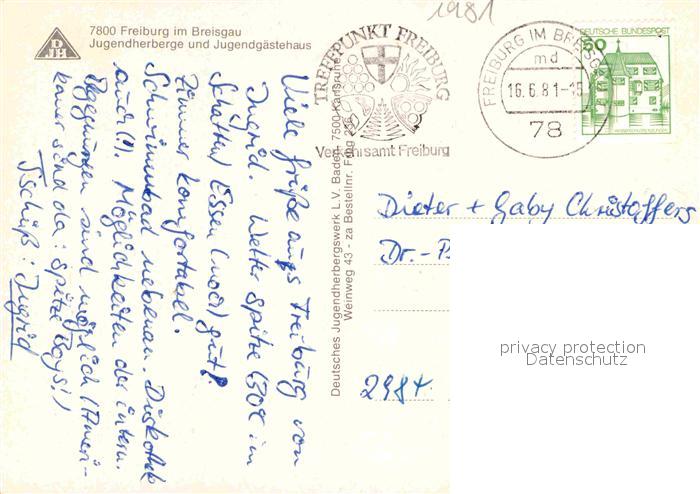 7800 Freiburg im Breisgau
Jugendherberge und Jugendgästehaus
DJH
1981
TREFFPUNKT FREIBURG
Verkehrsamt Freiburg
FREIBURG IM BREISGAU
md
16.6.81-15
78
DEUTSCHE BUNDESPOST
50
Viele Grüße aus Freiburg von
Ingrid. Wetter spitze (30° im
Schatten) Essen (noch) gut!
Zimmer komfortabel.
Schwimmbad nebenan. Diskothek
auch (!). Möglichkeiten der intern.
Begegnungen sind möglich (Ameri-
kaner sind da: spitze Boys!)
Tschüß: Ingrid
Deutsches Jugendherbergswerk L.V. Baden, 7500 Karlsruhe
Weinweg 43 - za Bestellnr. Frbg 236
Dieter + Gaby Christoffers
Dr.-
privacy protection
Datenschutz